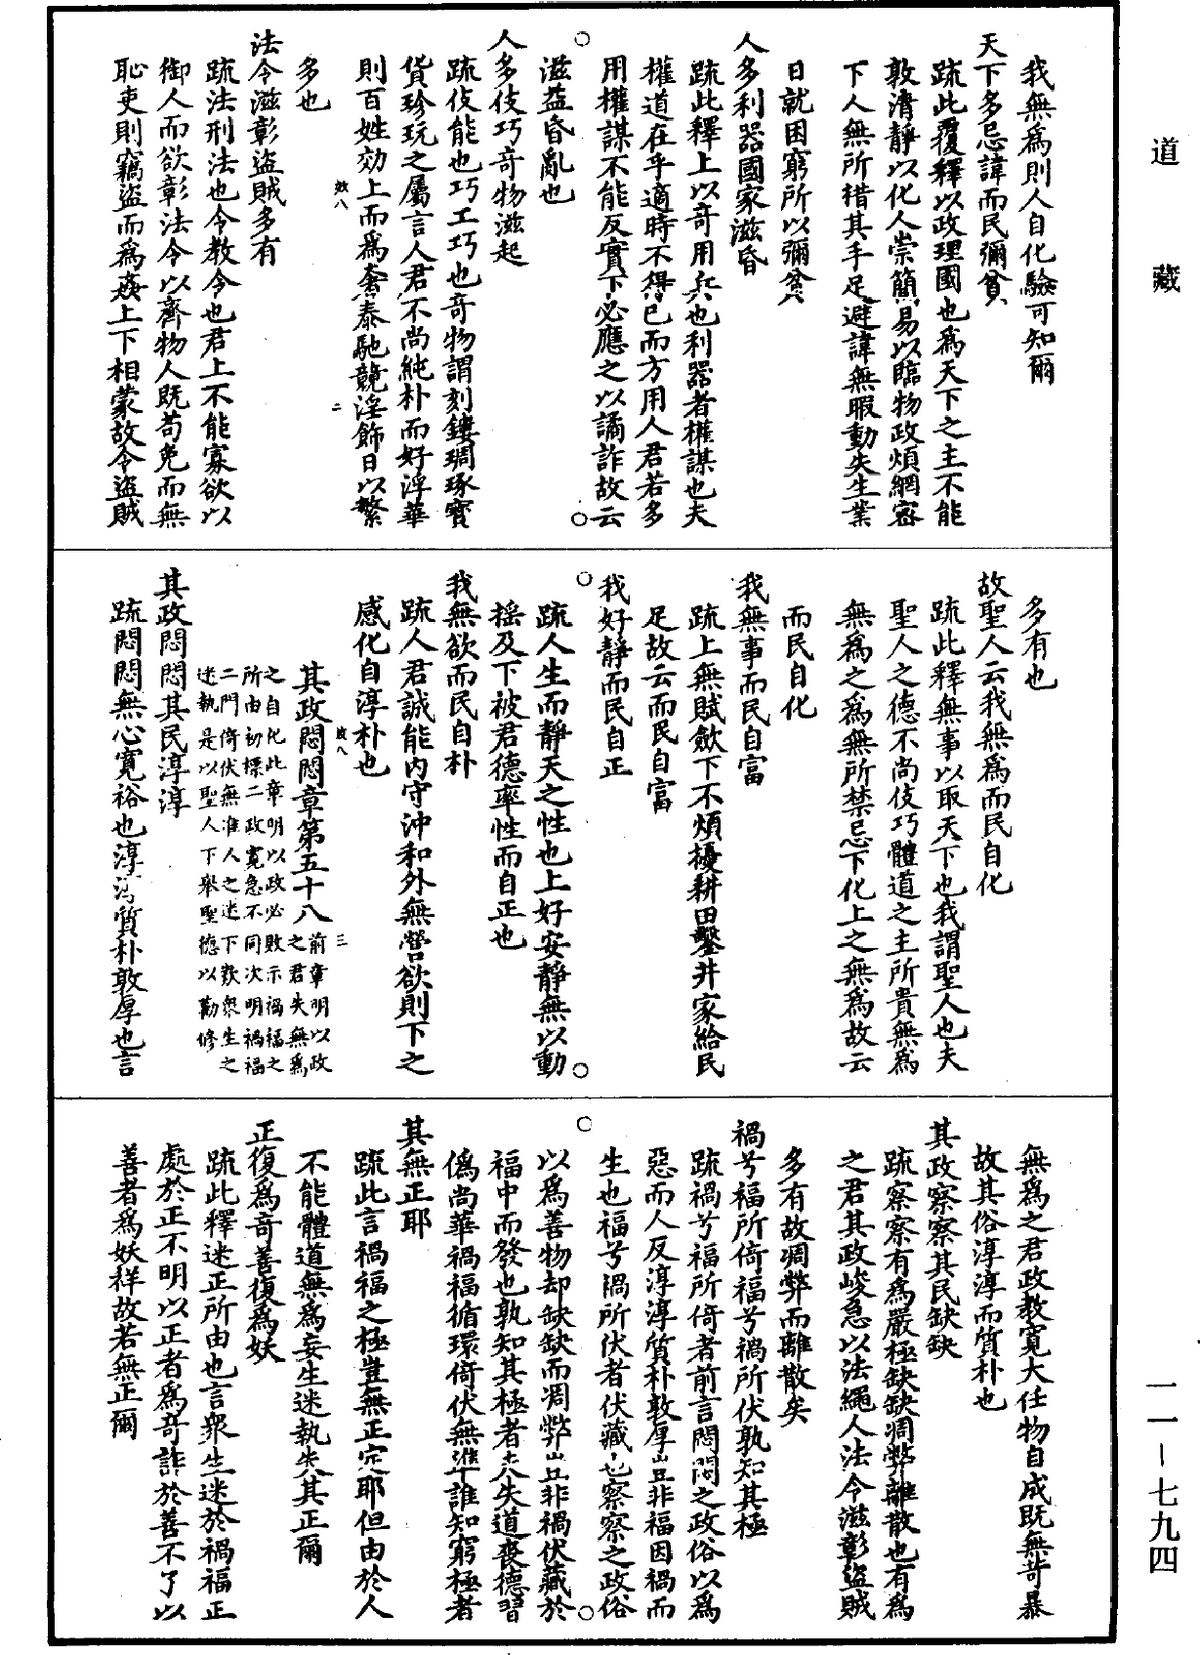 道藏
我無爲則人自化驗可知爾
天下多忌諱而民彌貧
疏此覆釋以政理國也爲天下之主不能
敦清靜以化人崇簡易以臨物政煩網密
下人無所措其手足避諱無暇動失生業
日就困窮所以彌貧
人多利器國家滋昏
疏此釋上以奇用兵也利器者權謀也夫
權道在乎適時不得已而方用人君若多
用權謀不能反實下必應之以譎詐故云
滋益昏亂也
人多伎巧奇物滋起
疏伎能也巧工巧也奇物謂刻鏤琱琢寳
貨珍玩之屬言人君不尚純朴而好浮華
則百姓効上而爲奢泰馳競淫飾日以繁
效八 二
多也
法令滋彰盜賊多有
疏法刑法也令教令也君上不能寡欲以
御人而欲彰法令以齊物人既苟免而無
恥吏則竊盜而爲姦上下相蒙故令盜賊
多有也
故聖人云我無爲而民自化
疏此釋無事以取天下也我謂聖人也夫
聖人之德不尚伎巧體道之主所貴無爲
無爲之爲無所禁忌下化上之無爲故云
而民自化
我無事而民自富
疏上無賦歛下不煩擾耕田鑿井家給民
足故云而民自富
我好靜而民自正
疏人生而靜天之性也上好安靜無以動
揺及下被君德率性而自正也
我無欲而民自朴
疏人君誠能内守沖和外無營欲則下之
感化自淳朴也
效八 三
其政悶悶章第五十八
前章明以政
之君失無爲
之自化此章明以政必敗示禍福之
所由初標二政寬急不同次明禍福
二門倚伏無准人之迷下歎衆生之
迷執是以聖人下舉聖德以勸修
其政悶悶其民淳淳
疏悶悶無心寬裕也淳淳質朴敦厚也言
無爲之君政教寛大任物自成既無苛暴
故其俗淳淳而質朴也
其政察察其民缺缺
疏察察有爲嚴極缺缺凋弊離散也有爲
之君其政峻急以法繩人法令滋彰盜賊
多有故凋弊而離散矣
禍兮福所倚福兮禍所伏孰知其極
疏禍兮福所倚者前言悶悶之政俗以爲
惡而人反淳淳質朴敦厚豈非福因禍而
生也福兮禍所伏者伏藏也察察之政俗
以爲善物却缺缺而凋弊豈非禍伏藏於
福中而發也孰知其極者夫失道喪德習
僞尚華禍福循環倚伏無準誰知窮極者
其無正耶
疏此言禍福之極豈無正定耶但由於人
不能體道無爲妄生迷執失其正爾
正復爲奇善復爲妖
疏此釋迷正所由也言衆生迷於禍福正
處於正不明以正者爲奇詐於善不了以
善者爲妖祥故若無正爾
一一—七九四